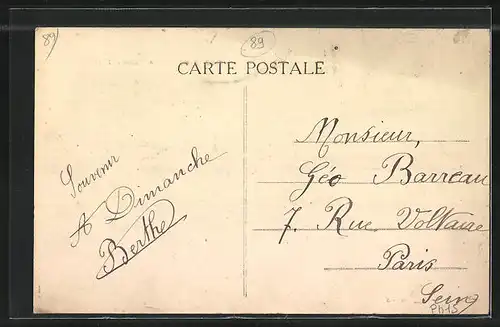 89
89
CARTE POSTALE
Souvenir
A Dimanche
Berthe
Monsieur,
Géo Barreau
7. Rue Voltaire
Paris
Seine